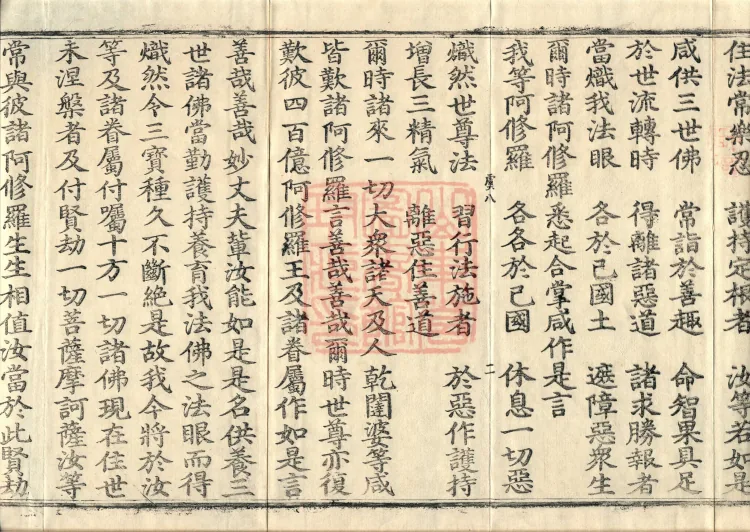 住法常樂忍　護持定根者　汝等若如是
咸供三世佛　常詣於善趣　命智果具足
於世流轉時　得離諸惡道　諸求勝報者
當熾我法眼　各於己國土　遮障惡眾生
爾時諸阿修羅悉起合掌咸作是言
我等阿修羅　各各於己國　休息一切惡
虞八
二
熾然世尊法　習行法施者　於惡作護持
增長三精氣　離惡住善道
爾時諸來一切大眾諸天及人乾闥婆等咸
皆歎諸阿修羅言善哉善哉爾時世尊亦復
歎彼四百億阿修羅王及諸眷屬作如是言
善哉善哉妙丈夫輩汝能如是是名供養三
世諸佛當勤護持養育我法佛之法眼而得
熾然令三寶種久不斷絕是故我今將於汝
等及諸眷屬付囑十方一切諸佛現在住世
未涅槃者及付賢劫一切菩薩摩訶薩汝等
常與彼諸阿修羅生生相值汝當於此賢劫